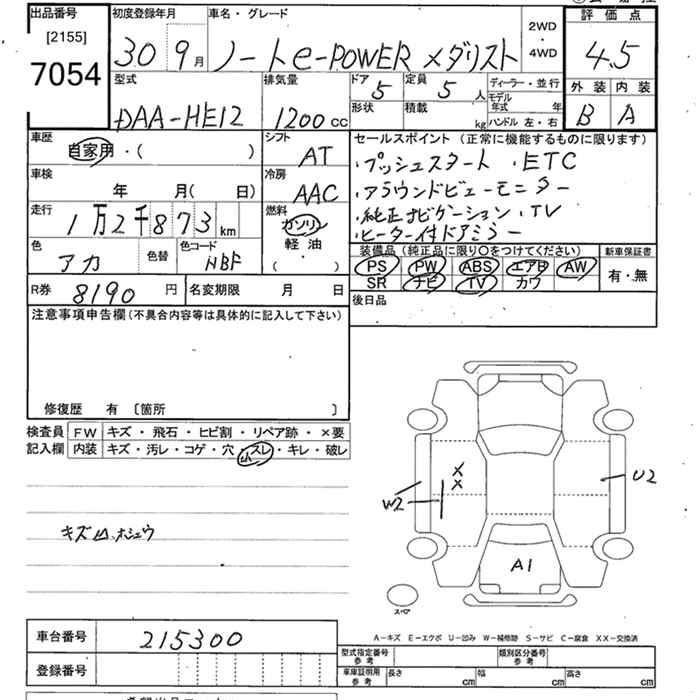 出品番号 初度登録年月 車名・グレード 評価点
[2155]
7054 30 9月 ノートe-POWER メダリスト 2WD・4WD 4.5
型式 排気量 ドア 定員 ディーラー・並行 外装 内装
DAA-HE12 1200cc 5 5人 モデル年式 年 B A
形状 積載 kg ハンドル 左・右
車歴 自家用・( ) シフト AT セールスポイント(正常に機能するものに限ります)
・プッシュスタート ・ETC
車検 年 月( 日) 冷房 AAC ・アラウンドビューモニター
走行 1万2千873km 燃料 ガソリン・軽油 ( ) ・純正ナビゲーション ・TV
・ヒーター付ドアミラー
色 アカ 色替 色コード NBF 装備品(純正品に限り〇をつけてください) 新車保証書
PS PW ABS エアB AW 有・無
SR ナビ TV カワ
R券 8190円 名変期限 月 日 後日品
注意事項申告欄(不具合内容等は具体的に記入して下さい)
修復歴 有 〔箇所 〕
検査員 FW キズ・飛石・ヒビ割・リペア跡・×要
記入欄 内装 キズ・汚レ・コゲ・穴・スレ・キレ・破レ
小
X
X
U2
W2
キズ凹 ホシュウ
A1
スペア
車台番号 215300 A-キズ E-エクボ U-凹み W-補修跡 S-サビ C-腐食 XX-交換済
登録番号 型式指定番号 参考 類別区分番号 参考
車庫証明用 参考 長さ cm 幅 cm 高さ cm